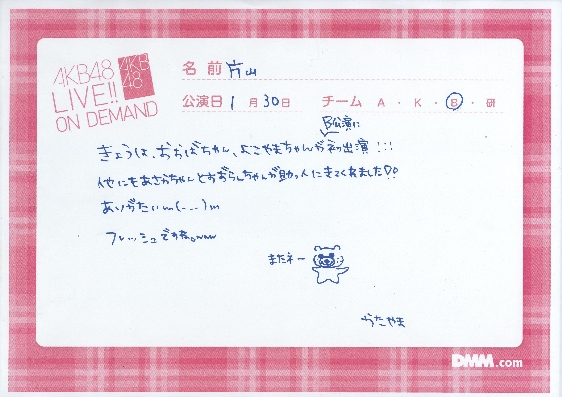 AKB48
LIVE!!
ON DEMAND
AKB
48
名前 片山
公演日 1月30日 チーム A・K・B・研
B公演に
きょうは、おおばちゃん、よこやまちゃんが初出演!!!
他にもあきちゃんとおぢらんちゃんが助っ人にきてくれました♡♡
ありがたいm(-__-)m
フレッシュですねぇwww
またネー
かたやま
DMM.com